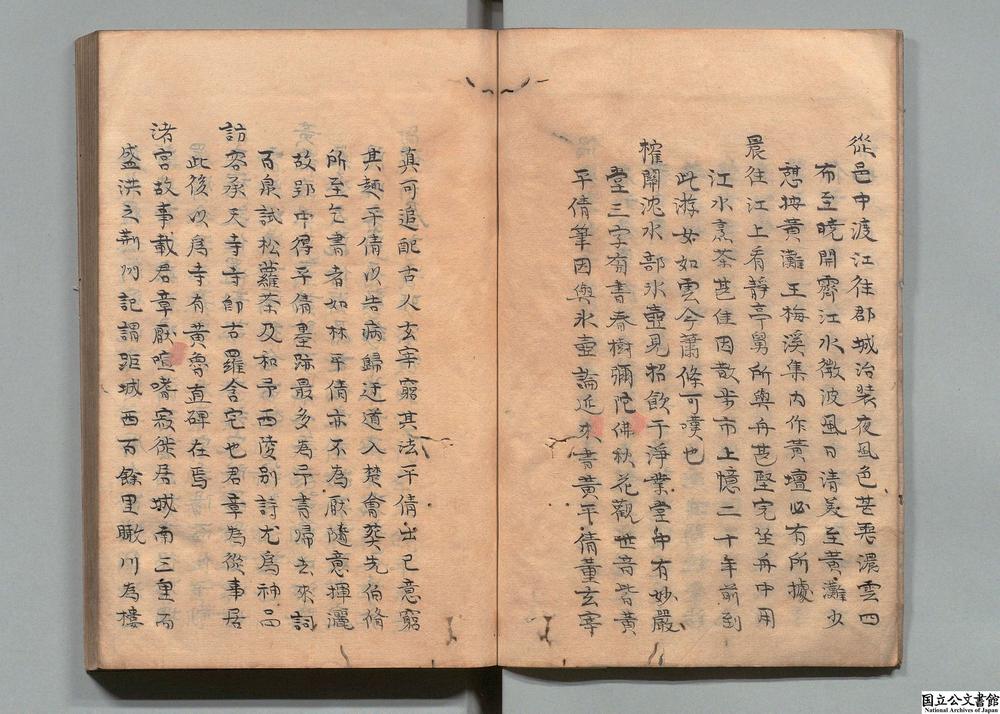 從邑中渡江往郡城治装夜風色甚悪濃雲四
布至曉開霽江水微波風日清美至黃灘少
憩按黃灘王梅溪集内作黃壇必有所據
晨往江上看靜亭舅所與舟甚堅完坐舟中用
江水烹茶甚佳因散步市上憶二十年前到
此游女如雲今蕭條可嘆也
榷關沈水部氷壺見招飲于淨業堂中有妙嚴
堂三字有書春樹彌陀佛秋花觀世音皆黃
平倩筆因與氷壺論近来書黃平倩董玄宰
真可追配古人玄宰窮其法平倩出己意窮
其趣平倩以告病歸迂道入楚會葬先伯脩
所至乞書者如林平倩亦不為厭隨意揮灑
故郢中得平倩墨跡最多為予書歸去來詞
百泉試松蘿茶及和予西陵别詩尤爲神品
訪容承天寺寺即古羅含宅也君章為從事居
此後以爲寺有黃魯直碑在焉
渚宮故事載君章厭喧嘩寂徙居城南三里而
盛洪之荊州記謂距城西百餘里瞰川為樓
国立公文書館
National Archives of Japan